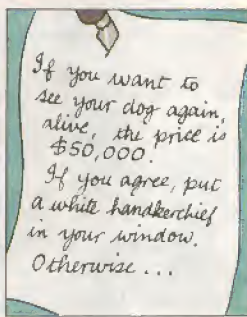 If you want to
see your dog again,
alive, the price is
$50,000.
If you agree, put
a white handkerchief
in your window.
Otherwise...